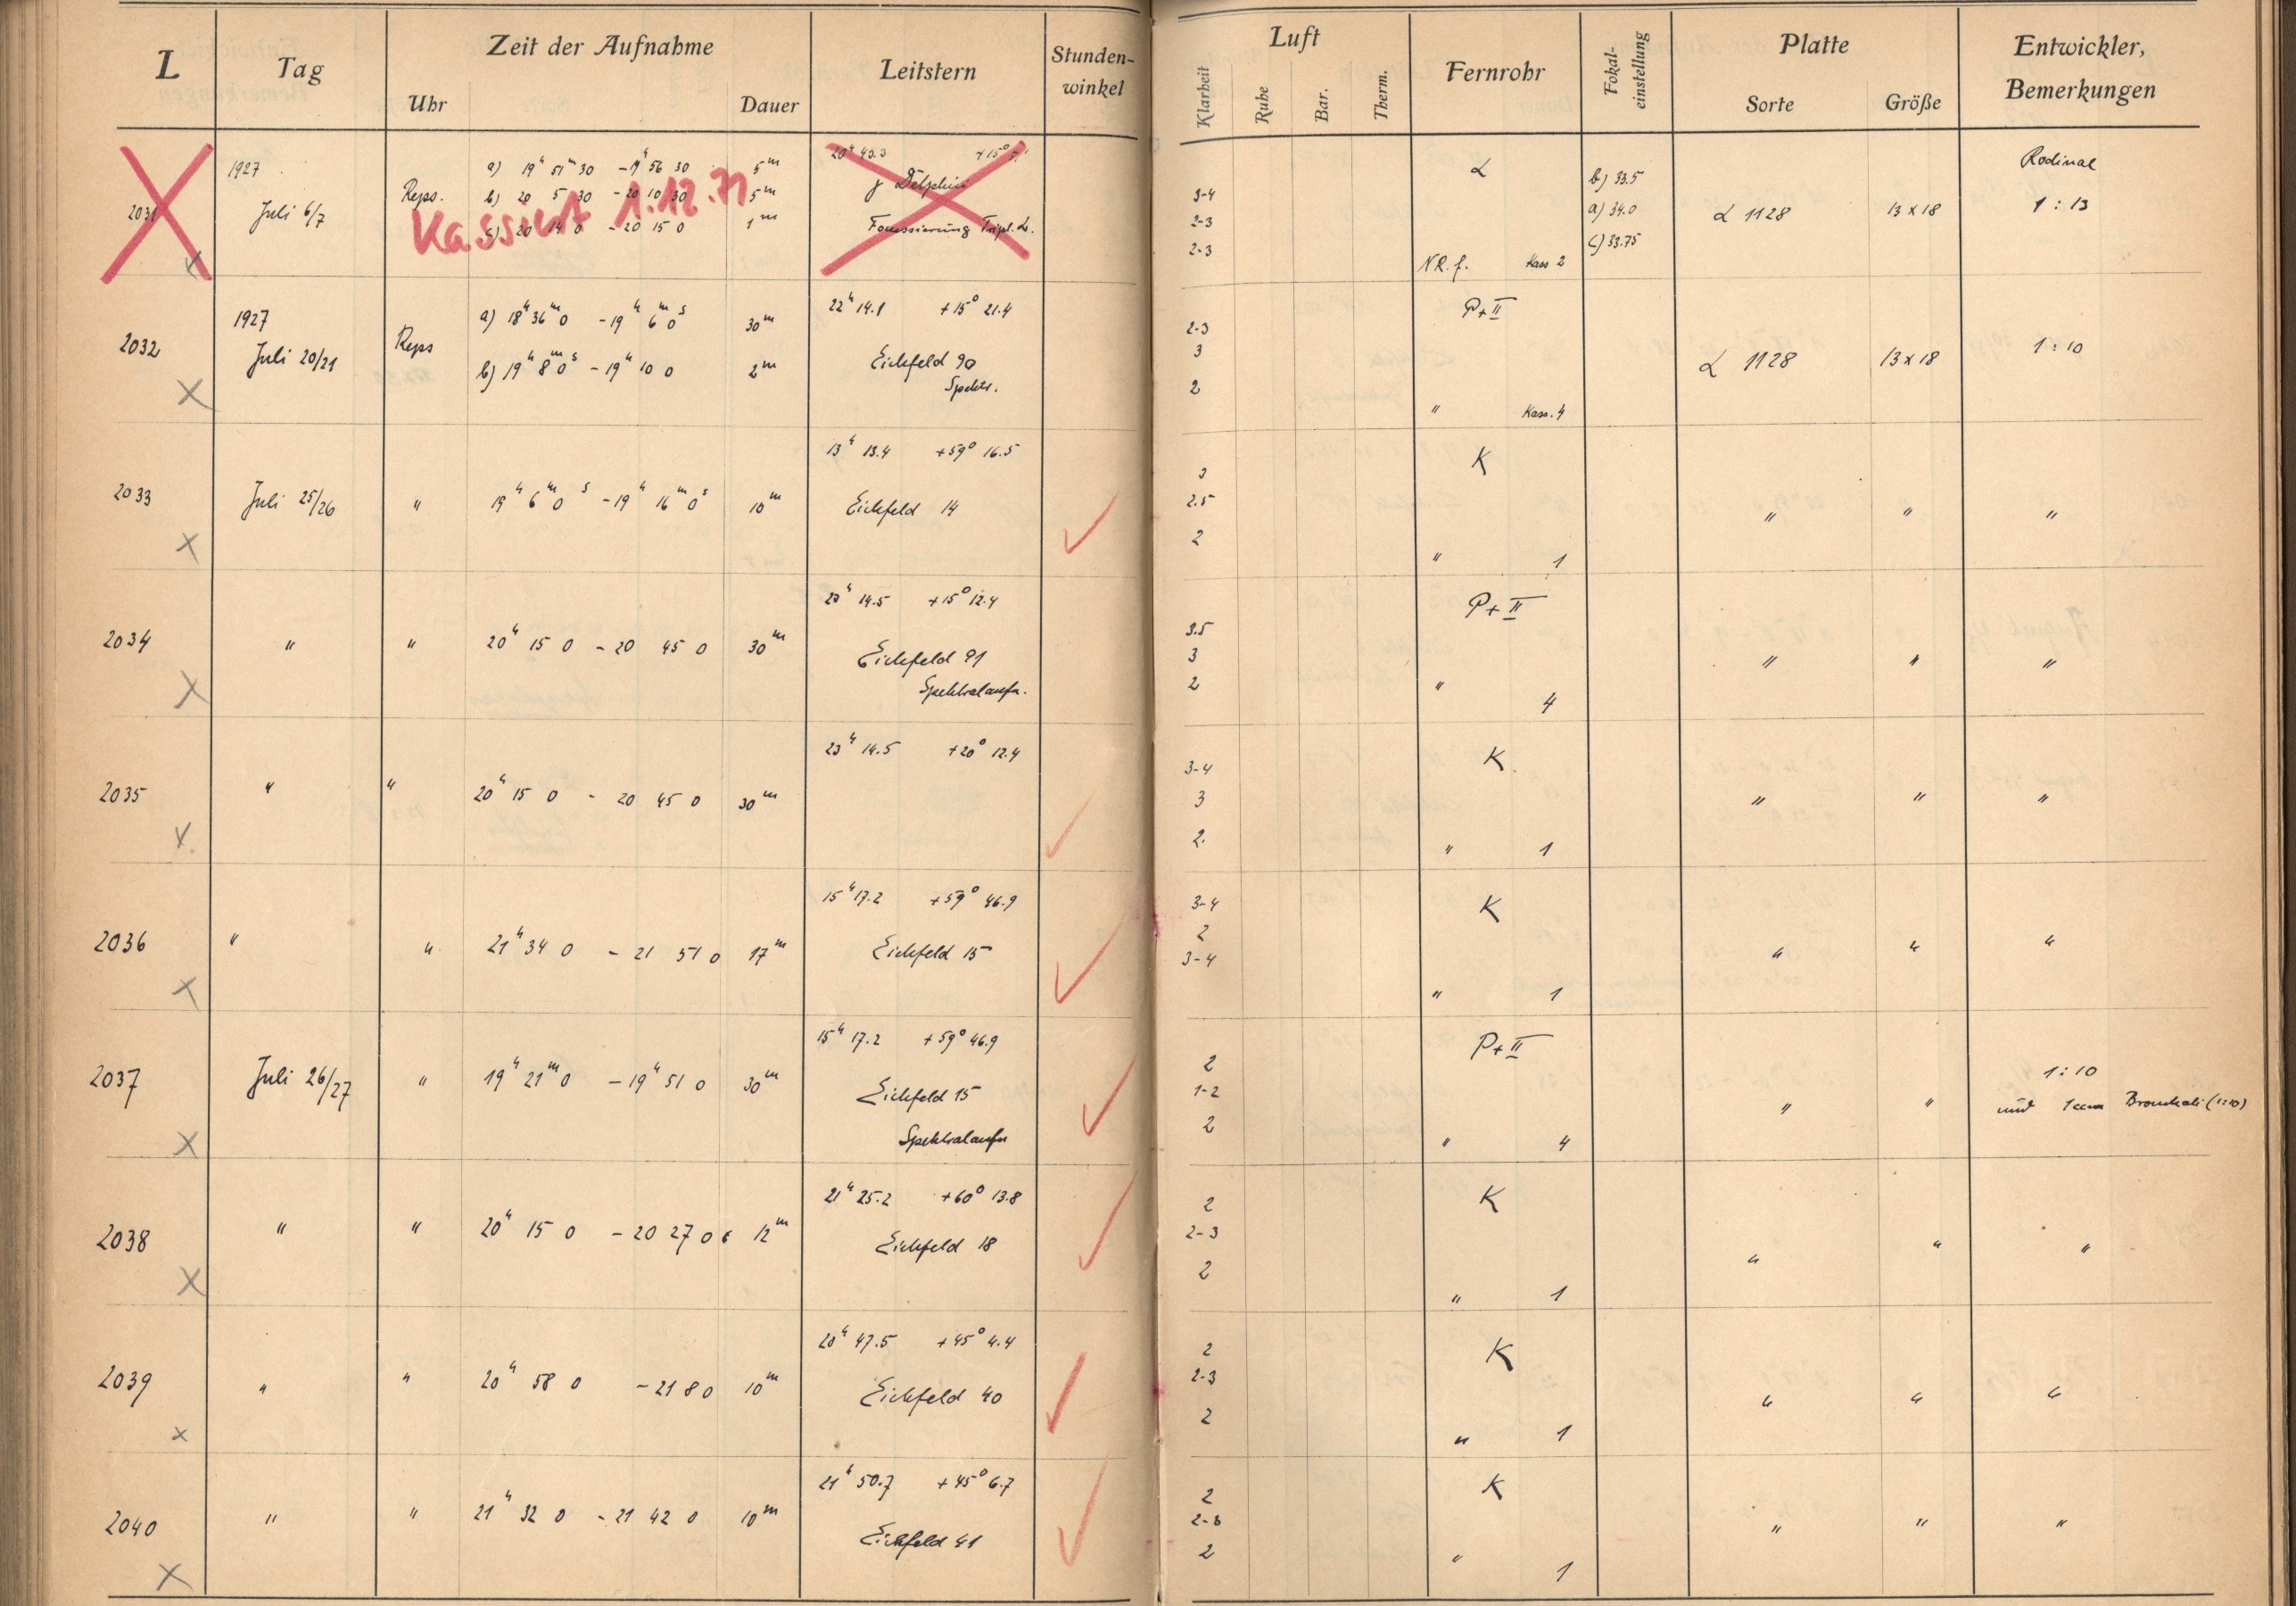 L Tag Zeit der Aufnahme Leitstern Stunden-winkel Luft Fernrohr Fokal-einstellung Platte Entwickler, Bemerkungen
Uhr Dauer Klarheit Ruhe Bar. Therm. Sorte Größe
1927 a) 19h 51m 30 - 19h 56 30 5m 20h 43.3 +15°
2031 Juli 6/7 Reps. b) 20 5 30 - 20 10 30 5m γ Delphini
c) 20 14 0 - 20 15 0 1m Fokussierung Tripl. L.
Kassiert 1.12.71
3-4 L b) 33.5 Rodinal
2-3 a) 34.0 L 1128 13 x 18 1 : 13
2-3 NR. f. Kass 2 c) 33.75
1927 a) 18h 36m 0 - 19h 6m 0s 30m 22h 14.1 +15° 21.4
2032 Juli 20/21 Reps b) 19h 8m 0s - 19h 10 0 2m Eichfeld 90
Spektr.
2-3 P+II
3 L 1128 13 x 18 1 : 10
2 " Kass. 4
13h 13.4 +59° 16.5
2033 Juli 25/26 " 19h 6m 0s - 19h 16m 0s 10m Eichfeld 14
3 K
2.5 " " "
2 " 1
23h 14.5 +15° 12.4
2034 " " 20h 15 0 - 20 45 0 30m Eichfeld 91
Spektralaufn.
3.5 P+II
3 " " "
2 " 4
23h 14.5 +20° 12.4
2035 " " 20h 15 0 - 20 45 0 30m
3-4 K
3 " " "
2. " 1
15h 17.2 +59° 46.9
2036 " " 21h 34 0 - 21 51 0 17m Eichfeld 15
3-4 K
2 " " "
3-4 " 1
15h 17.2 +59° 46.9
2037 Juli 26/27 " 19h 21m 0 - 19h 51 0 30m Eichfeld 15
Spektralaufn
2 P+II 1 : 10
1-2 " " und 1ccm Bromkali (1:10)
2 " 4
21h 25.2 +60° 13.8
2038 " " 20h 15 0 - 20 27 0 12m Eichfeld 18
2 K
2-3 " " "
2 " 1
20h 47.5 +45° 4.4
2039 " " 20h 58 0 - 21 8 0 10m Eichfeld 40
2 K
2-3 " " "
2 " 1
21h 50.7 +45° 6.7
2040 " " 21h 32 0 - 21 42 0 10m Eichfeld 41
2 K
2-3 " " "
2 " 1